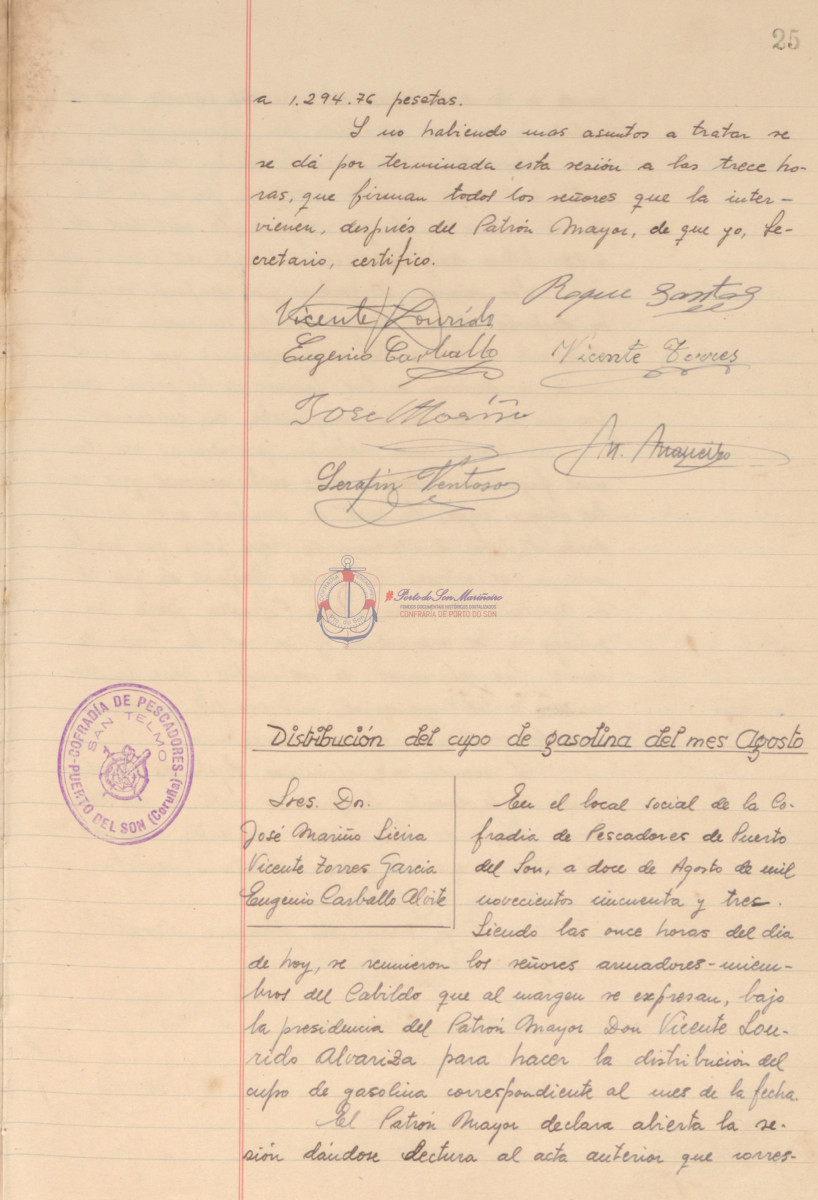 25
a 1.294.76 pesetas.
Y no habiendo mas asuntos a tratar se
se dá por terminada esta sesión a las trece ho-
ras, que firman todos los señores que la inter-
vienen, después del Patrón Mayor, de que yo, Se-
cretario, certifico.
Vicente Lourido
Roque Santos
Eugenio Carballo
Vicente Torres
Jose Mariño
M. Maneiro
Serafin Ventoso
Porto do Son Mariñeiro
FONDOS DOCUMENTAIS HISTÓRICOS DIXITALIZADOS
CONFRARÍA DE PORTO DO SON
COFRADÍA DE PESCADORES
SAN TELMO
PUERTO DEL SON (Coruña)
Distribución del cupo de gasolina del mes Agosto
Sres. Dn.
José Mariño Lieira
Vicente Torres Garcia
Eugenio Carballo Alvite
En el local social de la Co-
fradia de Pescadores de Puerto
del Son, a doce de Agosto de mil
novecientos cincuenta y tres.
Siendo las once horas del dia
de hoy, se reunieron los señores armadores-miem-
bros del Cabildo que al margen se expresan, bajo
la presidencia del Patrón Mayor Don Vicente Lou-
rido Alvariza para hacer la distribución del
cupo de gasolina correspondiente al mes de la fecha.
El Patrón Mayor declara abierta la se-
sión dándose lectura al acta anterior que corres-